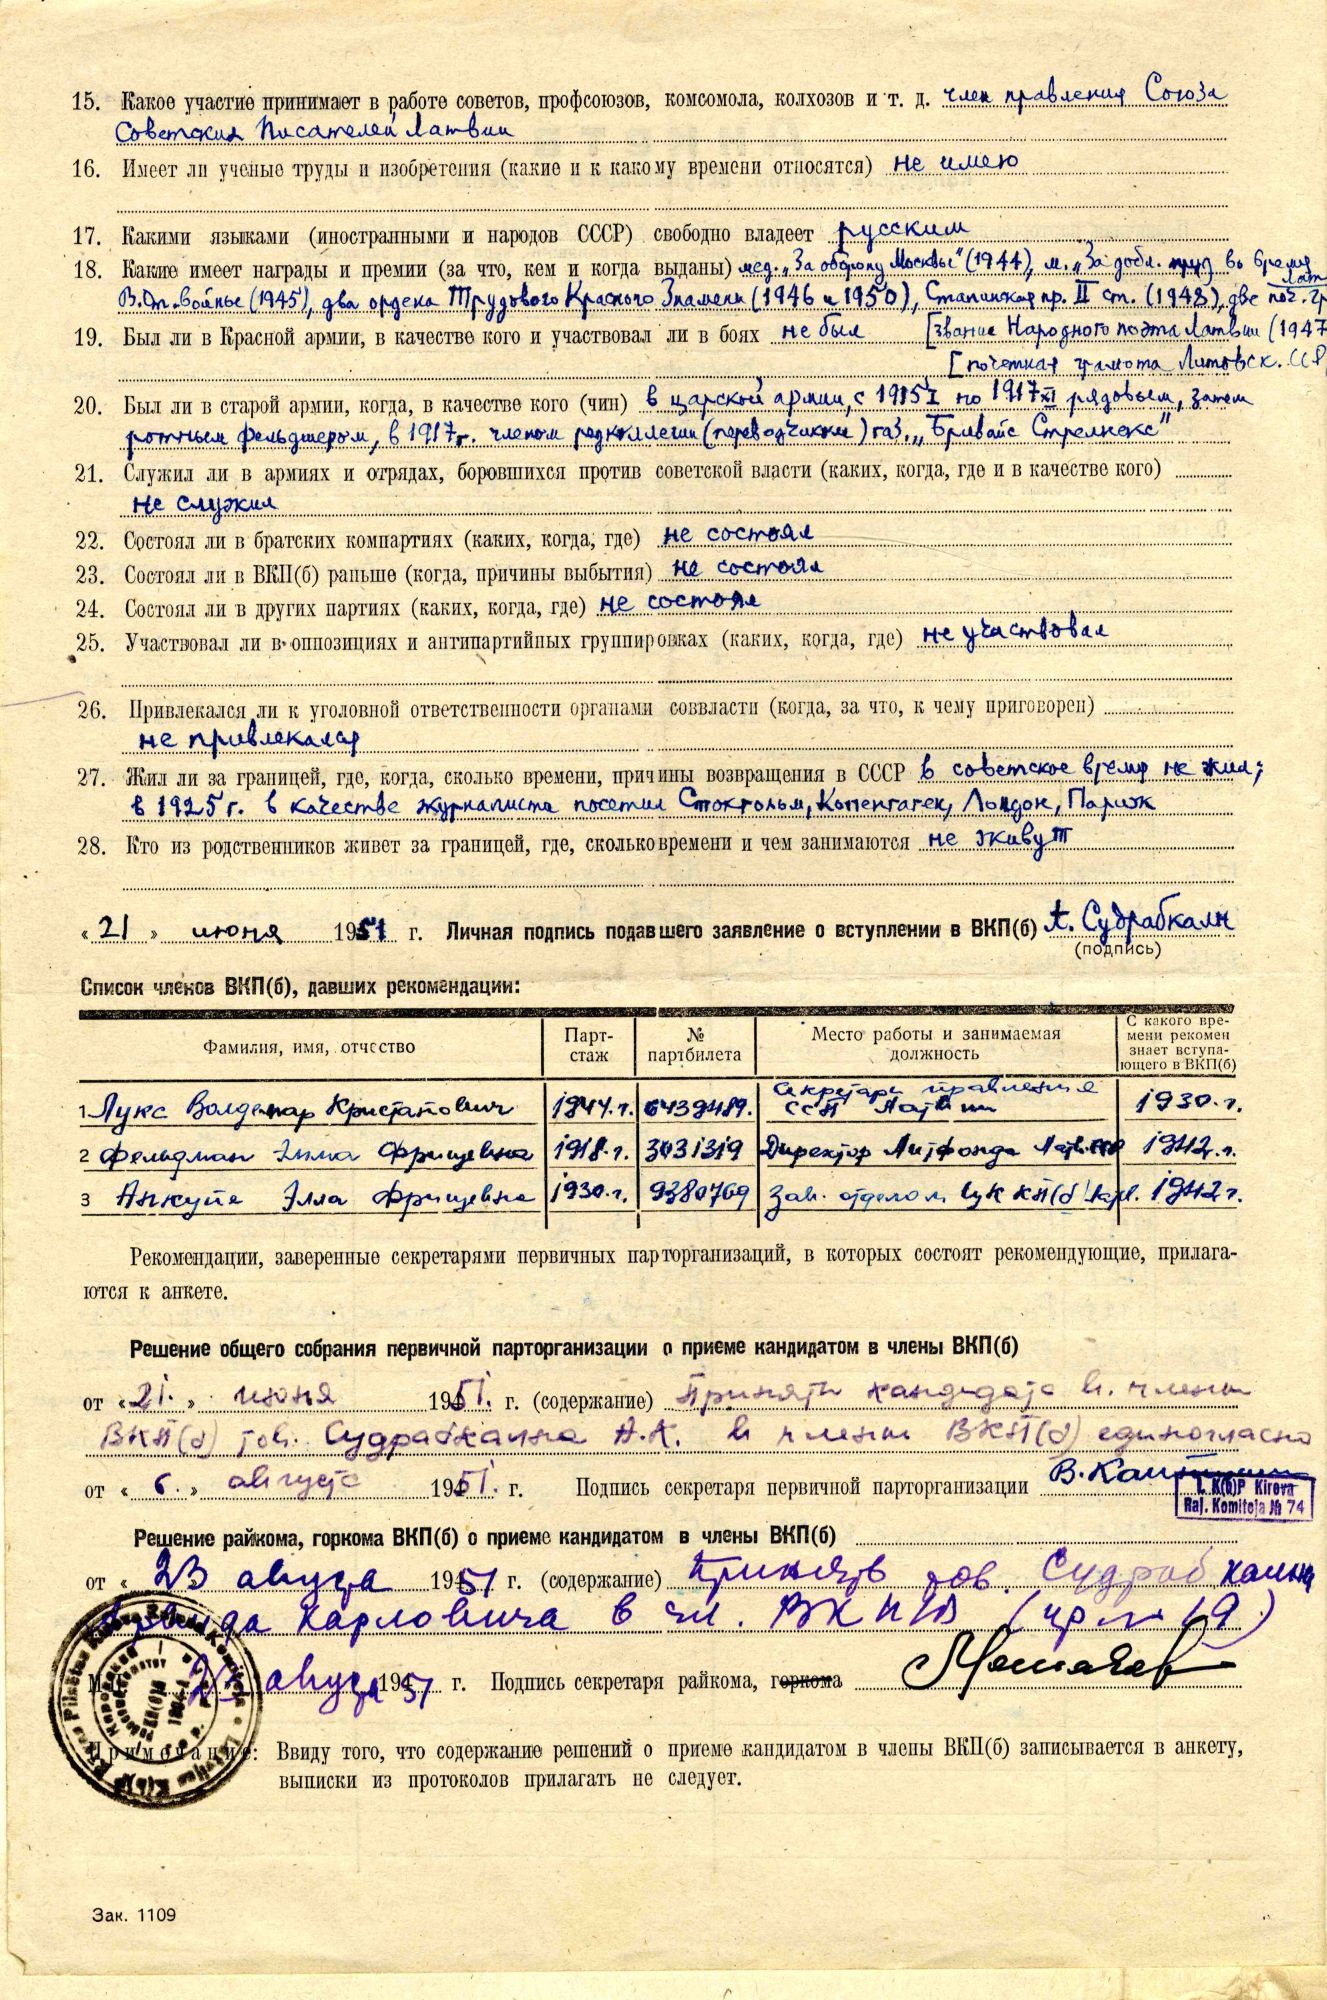 15. Какое участие принимает в работе советов, профсоюзов, комсомола, колхозов и т. д. член правления Союза
Советских Писателей Латвии
16. Имеет ли ученые труды и изобретения (какие и к какому времени относятся) не имею
17. Какими языками (иностранными и народов СССР) свободно владеет русским
18. Какие имеет награды и премии (за что, кем и когда выданы) мед. „За оборону Москвы" (1944), м. „За добл. труд во время
В. От. войны (1945), два ордена Трудового Красного Знамени (1946 и 1950), Сталинская пр. II ст. (1948), две поч. гр. Латв.
19. Был ли в Красной армии, в качестве кого и участвовал ли в боях не был [звание Народного поэта Латвии (1947
[почетная грамота Литовск. ССР
20. Был ли в старой армии, когда, в качестве кого (чин) в царской армии, с 1915 I по 1917 XI рядовым, затем
ротным фельдшером, в 1917 г. членом редколлегии (переводчиком) газ. „Бривайс Стрелнекс"
21. Служил ли в армиях и отрядах, боровшихся против советской власти (каких, когда, где и в качестве кого)
не служил
22. Состоял ли в братских компартиях (каких, когда, где) не состоял
23. Состоял ли в ВКП(б) раньше (когда, причины выбытия) не состоял
24. Состоял ли в других партиях (каких, когда, где) не состоял
25. Участвовал ли в оппозициях и антипартийных группировках (каких, когда, где) не участвовал
26. Привлекался ли к уголовной ответственности органами соввласти (когда, за что, к чему приговорен)
не привлекался
27. Жил ли за границей, где, когда, сколько времени, причины возвращения в СССР в советское время не жил;
в 1925 г. в качестве журналиста посетил Стокгольм, Копенгаген, Лондон, Париж
28. Кто из родственников живет за границей, где, сколько времени и чем занимаются не живут
« 21 » июня 1951 г. Личная подпись подавшего заявление о вступлении в ВКП(б) А. Судрабкалн
(подпись)
Список членов ВКП(б), давших рекомендации:
Фамилия, имя, отчество Парт-стаж № партбилета Место работы и занимаемая должность С какого времени рекомен знает вступающего в ВКП(б)
1 Лукс Волдемар Кристапович 1944. г. 6439489. Секретарь правления ССП Латвии 1930. г.
2 Фельдман Эмма Фрицевна 1918. г. 3031319 Директор Литфонда Латв. ССР 1942. г.
3 Анкупе Элла Фрицевна 1930. г. 9380769 Зав. отделом ЦК КП(б) Латв. 1942 г.
Рекомендации, заверенные секретарями первичных парторганизаций, в которых состоят рекомендующие, прилага-
ются к анкете.
Решение общего собрания первичной парторганизации о приеме кандидатом в члены ВКП(б)
от « 21. » июня 1951. г. (содержание) Принять кандидата в. члены
ВКП(б) тов. Судрабкална А.К. в члены ВКП(б) единогласно
от « 6. » августа 1951. г. Подпись секретаря первичной парторганизации
L. K(b)P Kirova
Raj. Komiteja № 74
Решение райкома, горкома ВКП(б) о приеме кандидатом в члены ВКП(б)
от « 23 августа 1951 г. (содержание) Принять тов. Судрабкална
Арвида Карловича в чл. ВКП(б) (пр № 19)
августа 1951 г. Подпись секретаря райкома, горкома
Примечание: Ввиду того, что содержание решений о приеме кандидатом в члены ВКП(б) записывается в анкету,
выписки из протоколов прилагать не следует.
Зак. 1109